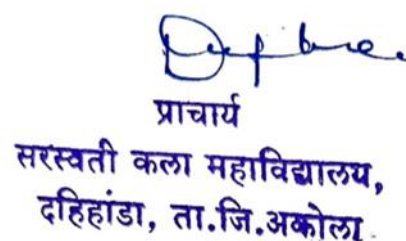 प्राचार्य
सरस्वती कला महाविद्यालय,
दहिहांडा, ता.जि.अकोला.